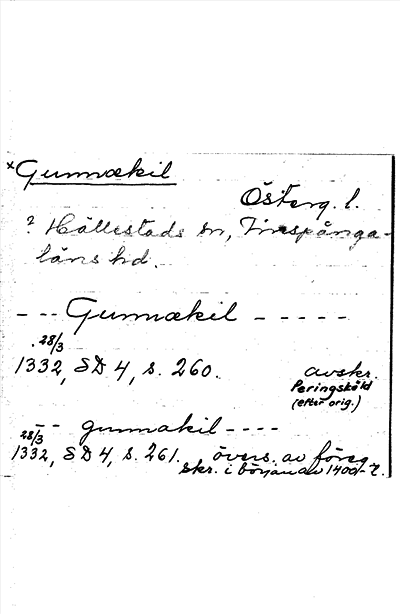 ×Gunnækil
Österg. l.
? Hällestads sn, Finspånga-
läns hd.
- -- Gunnækil - - - - -
28/3
1332, SD 4, s. 260. avskr.
Peringsköld
(efter orig.)
- - gunnakil - - - -
28/3
1332, SD 4, s. 261. övers. av föreg.
skr. i början av 1400-t.